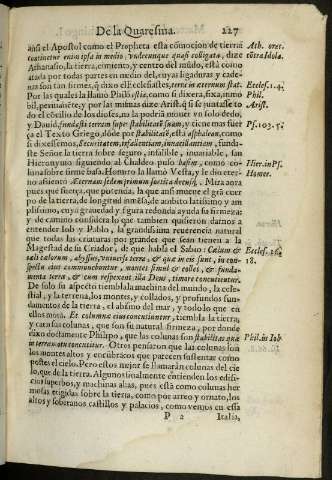 De la Quaresma. 227
ansi el Apostol como el Propheta esta cōmocion de tierra
continetur enim ipsa in medio, vndecunque quasi colligata,
Athanasio, la tierra, cimiento, y centro del mūdo, está como
atada por todas partes en medio del, cuyas ligaduras y cade-
nas son tan firmes, q̃ dixo el Ecclesiastes, terra in æternum stat.
Por las quales la llamò Philò estia, como si dixera, fixa,
bil, permaneinte, y por las mismas dize Arist. q̃ si se juntasse to
do el cōcilio de los dioses, no la podriā mouer un solo dedo,
y Dauid, fundasti terram super stabilitatē suam, y tiene mas fuer
ça el Texto Griego, dōde por stabilitatē, está asphalean, como
si dixessemos, Securitatem, infallentiam, inuacillantiam, funda-
ste Señor la tierra sobre seguro, infalible, inuariable, san
Hieronymo siguiendo al Chaldeo puso basim, como co-
luna sobre firme basa. Homero la llamò Vesta, y le dio eter-
no assiento Æternum sedem primum sortita deorum. Mira aora
pues que fuerça, que potencia, la que ansi mueue el gran cor-
po de la tierra, de longitud inmēsa, de ambito latissimo y am
plissimo, cuya grauedad y figura redonda ayuda su firmeza:
y de camino considera lo que tambien quisieron darnos a
entender Iob y Pablo, la grandissima reuerencia natural
que todas las criaturas por grandes que sean tienen a la
Magestad de su Criador, de que habla el Sabio: Cælum &
cæli cælorum, abyssus, vniuersa terra, & quæ in eis sunt, in con-
spectu eius commouebuntur, montes simul & colles, & funda-
menta terræ, & cum respexerit illa Deus, timore concutientur.
De solo su aspecto tiembla la machina del mundo, la cele-
stial, y la terrena, los montes, y collados, y profundos fun-
damentos de la tierra, el abismo del mar, y todo lo que en
ellos mora. Et columnæ eius concutientur, tiembla la tierra,
y can sus colunas, que son su natural firmeza, por donde
dixo doctamente Philipo, que las colunas son stabilitas quæ
in terram continentur. Otros pensaron que las colunas son
los montes altos y encūbrados que parecen sustentar como
postes el cielo. Pero estos mejor se llamaràn colunas del cie
lo, que de la tierra. Algunos moralmente entienden los edifi-
cios superbos, y machinas altas, pues està como colunas her
mosas erigidas sobre la tierra, como por arreo y ornato, los
altos y soberanos castillos y palacios, como vemos en essa
P 2 Italia,
Ath. orat.
cōtra Idola.
Ecclef. 1.4.
Phil.
Arist.
Ps. 103. 5.
Hier. in Ps.
Homer.
Eccles. 16.
18.
Phil. in Iob